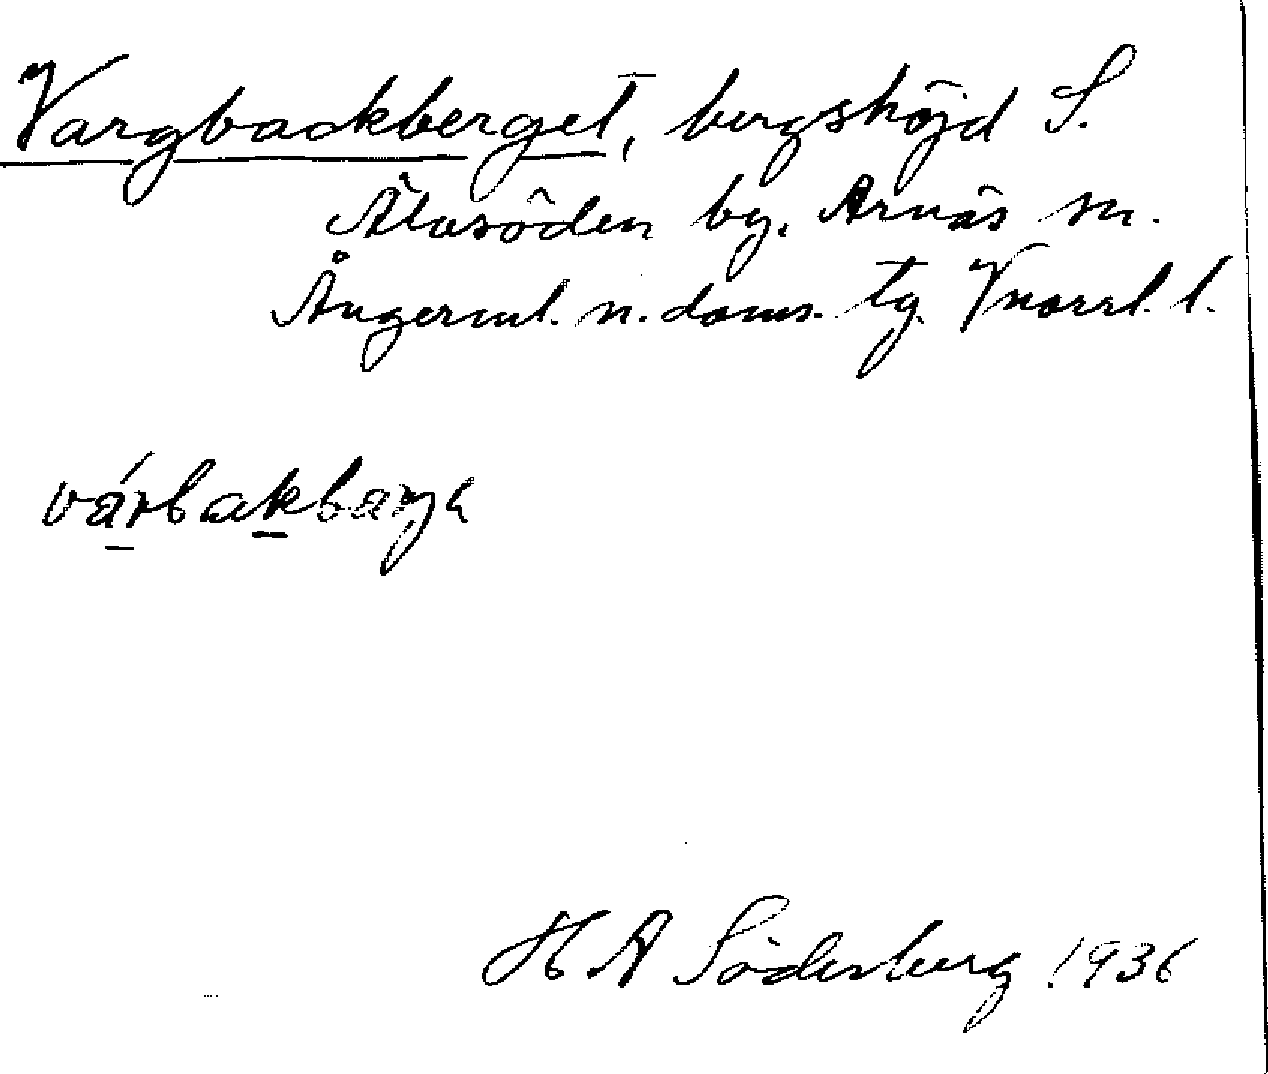 Vargbackberget, bergshöjd S.
Älvsöden by, Arnäs sn.
Ångerml. n. doms. tg. Vnorrl. l.
várbakbarjə
H A Söderberg 1936